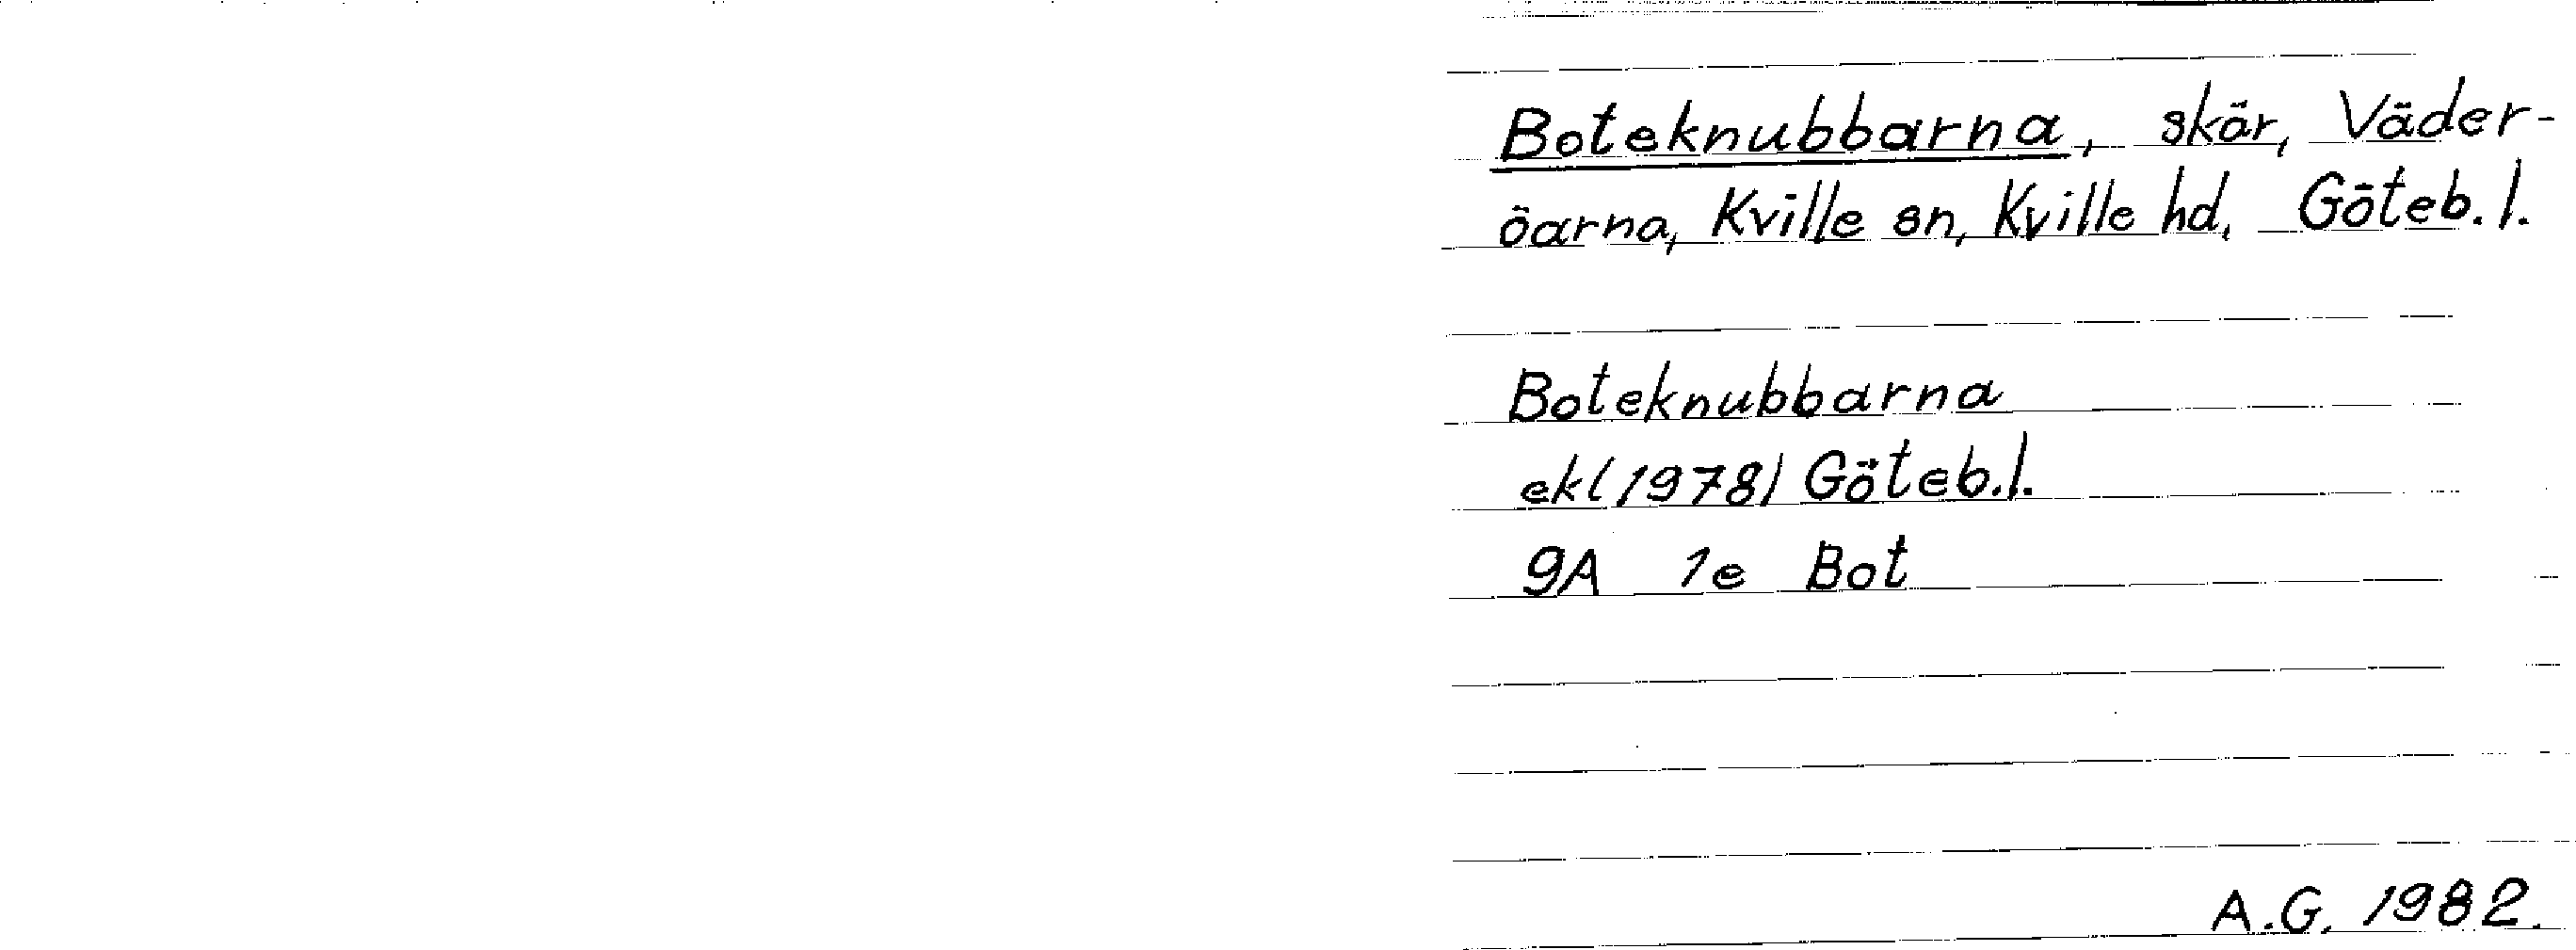 Boteknubbarna, skär, Väder-
öarna, Kville sn, Kville hd, Göteb. l.
Boteknubbarna
ekl (1978) Göteb. l.
9A 1e Bot
A.G. 1982.